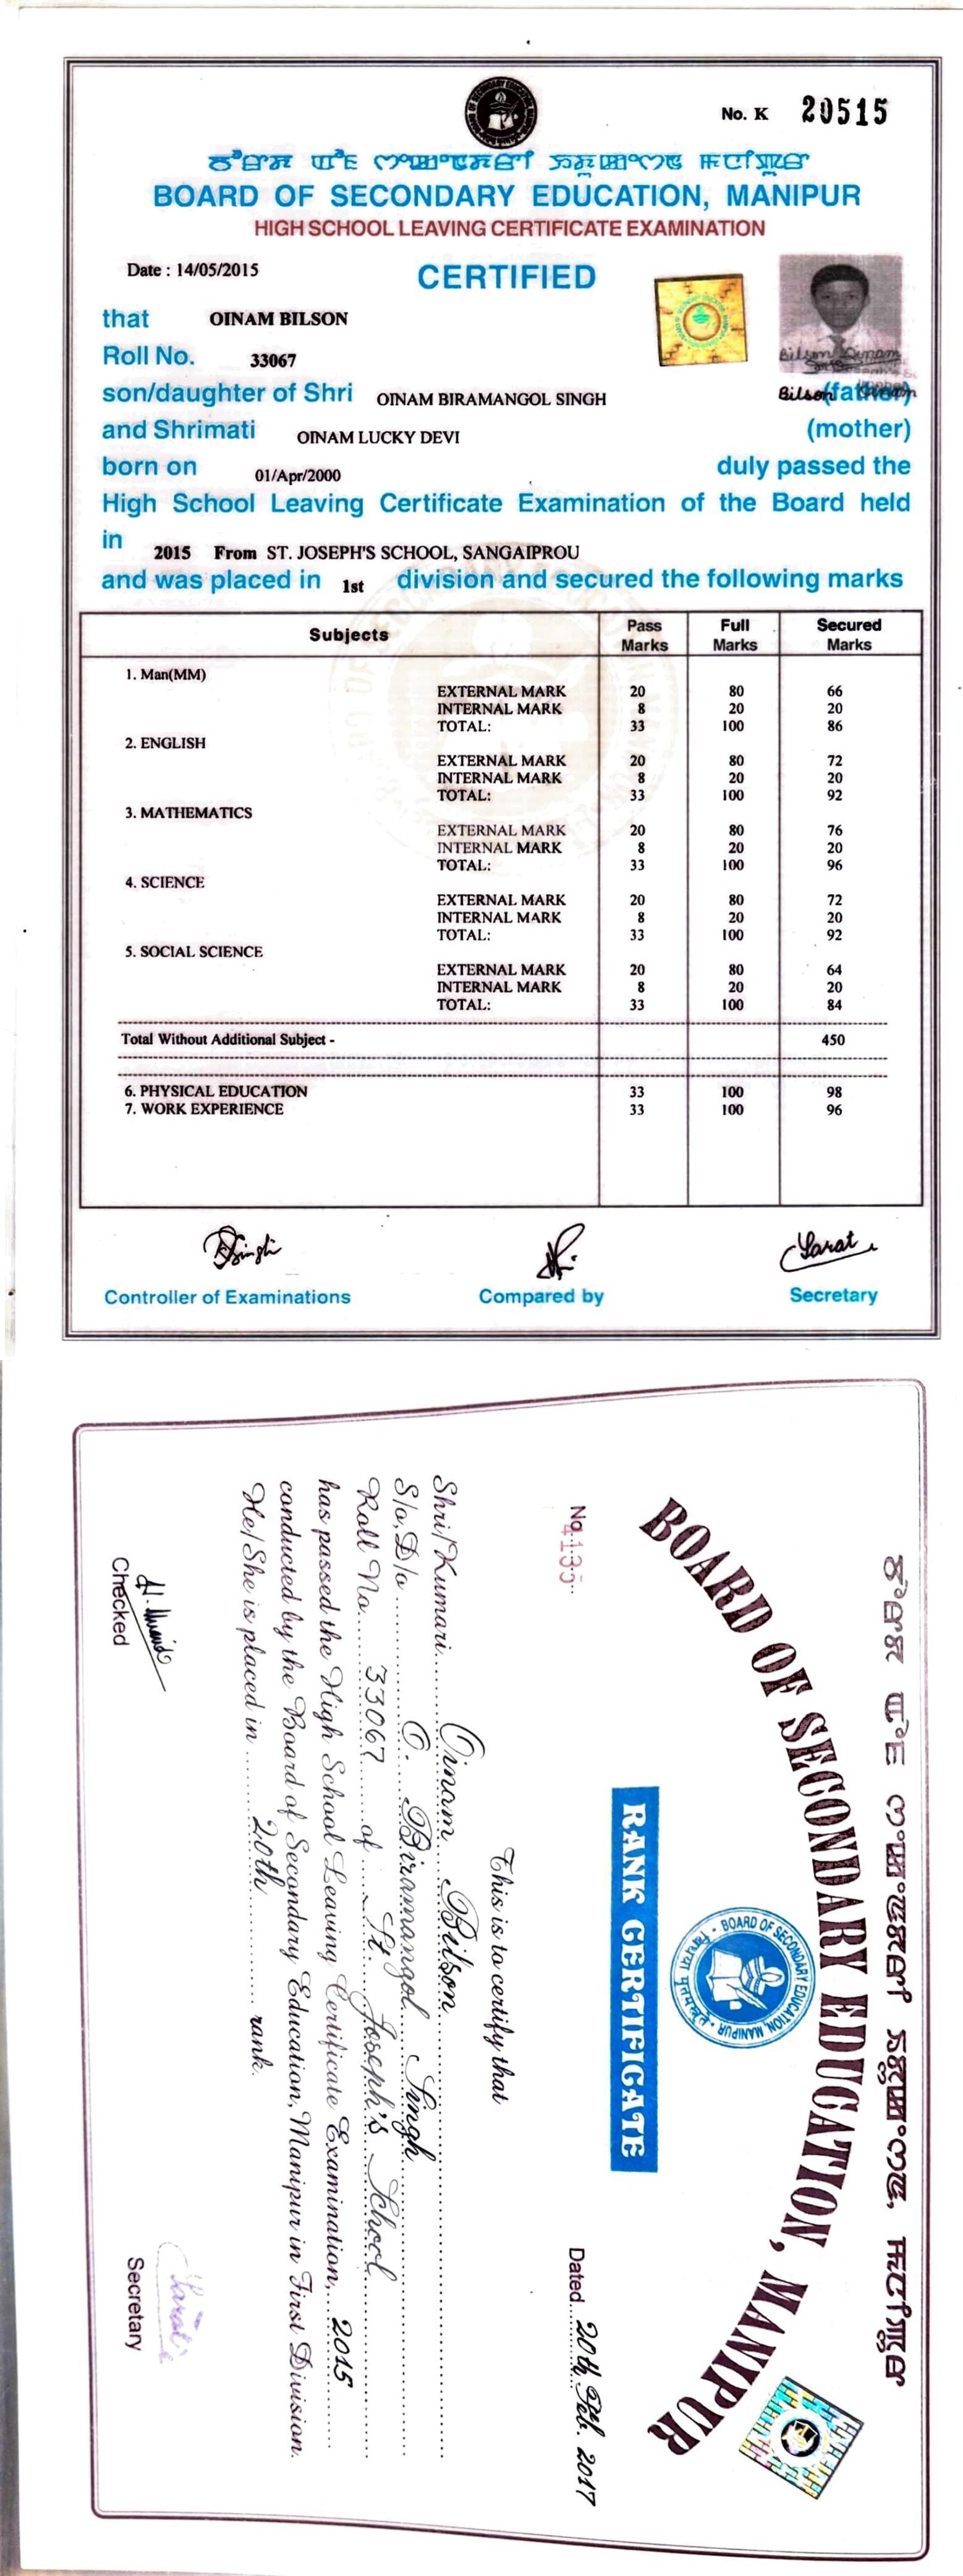 No. K 20515
BOARD OF SECONDARY EDUCATION, MANIPUR
HIGH SCHOOL LEAVING CERTIFICATE EXAMINATION
Date : 14/05/2015 CERTIFIED
that OINAM BILSON
Roll No. 33067
Bilson Oinam
son/daughter of Shri OINAM BIRAMANGOL SINGH (father)
Bilson Oinam
and Shrimati OINAM LUCKY DEVI (mother)
born on 01/Apr/2000 duly passed the
High School Leaving Certificate Examination of the Board held
in 2015 From ST. JOSEPH'S SCHOOL, SANGAIPROU
and was placed in 1st division and secured the following marks
Subjects Pass Marks Full Marks Secured Marks
1. Man(MM)
EXTERNAL MARK 20 80 66
INTERNAL MARK 8 20 20
TOTAL: 33 100 86
2. ENGLISH
EXTERNAL MARK 20 80 72
INTERNAL MARK 8 20 20
TOTAL: 33 100 92
3. MATHEMATICS
EXTERNAL MARK 20 80 76
INTERNAL MARK 8 20 20
TOTAL: 33 100 96
4. SCIENCE
EXTERNAL MARK 20 80 72
INTERNAL MARK 8 20 20
TOTAL: 33 100 92
5. SOCIAL SCIENCE
EXTERNAL MARK 20 80 64
INTERNAL MARK 8 20 20
TOTAL: 33 100 84
Total Without Additional Subject - 450
6. PHYSICAL EDUCATION 33 100 98
7. WORK EXPERIENCE 33 100 96
Sarat
Controller of Examinations Compared by Secretary
BOARD OF SECONDARY EDUCATION, MANIPUR
BOARD OF SECONDARY EDUCATION, MANIPUR
RANK CERTIFICATE
No. 4135 Dated 20th Feb. 2017
This is to certify that
Shri/Kumari Oinam Bilson
S/o, D/o O. Biramangol Singh
Roll No. 33067 of St. Joseph's School
has passed the High School Leaving Certificate Examination, 2015
conducted by the Board of Secondary Education, Manipur in First Division.
He/She is placed in 20th rank.
Sarat
Checked Secretary